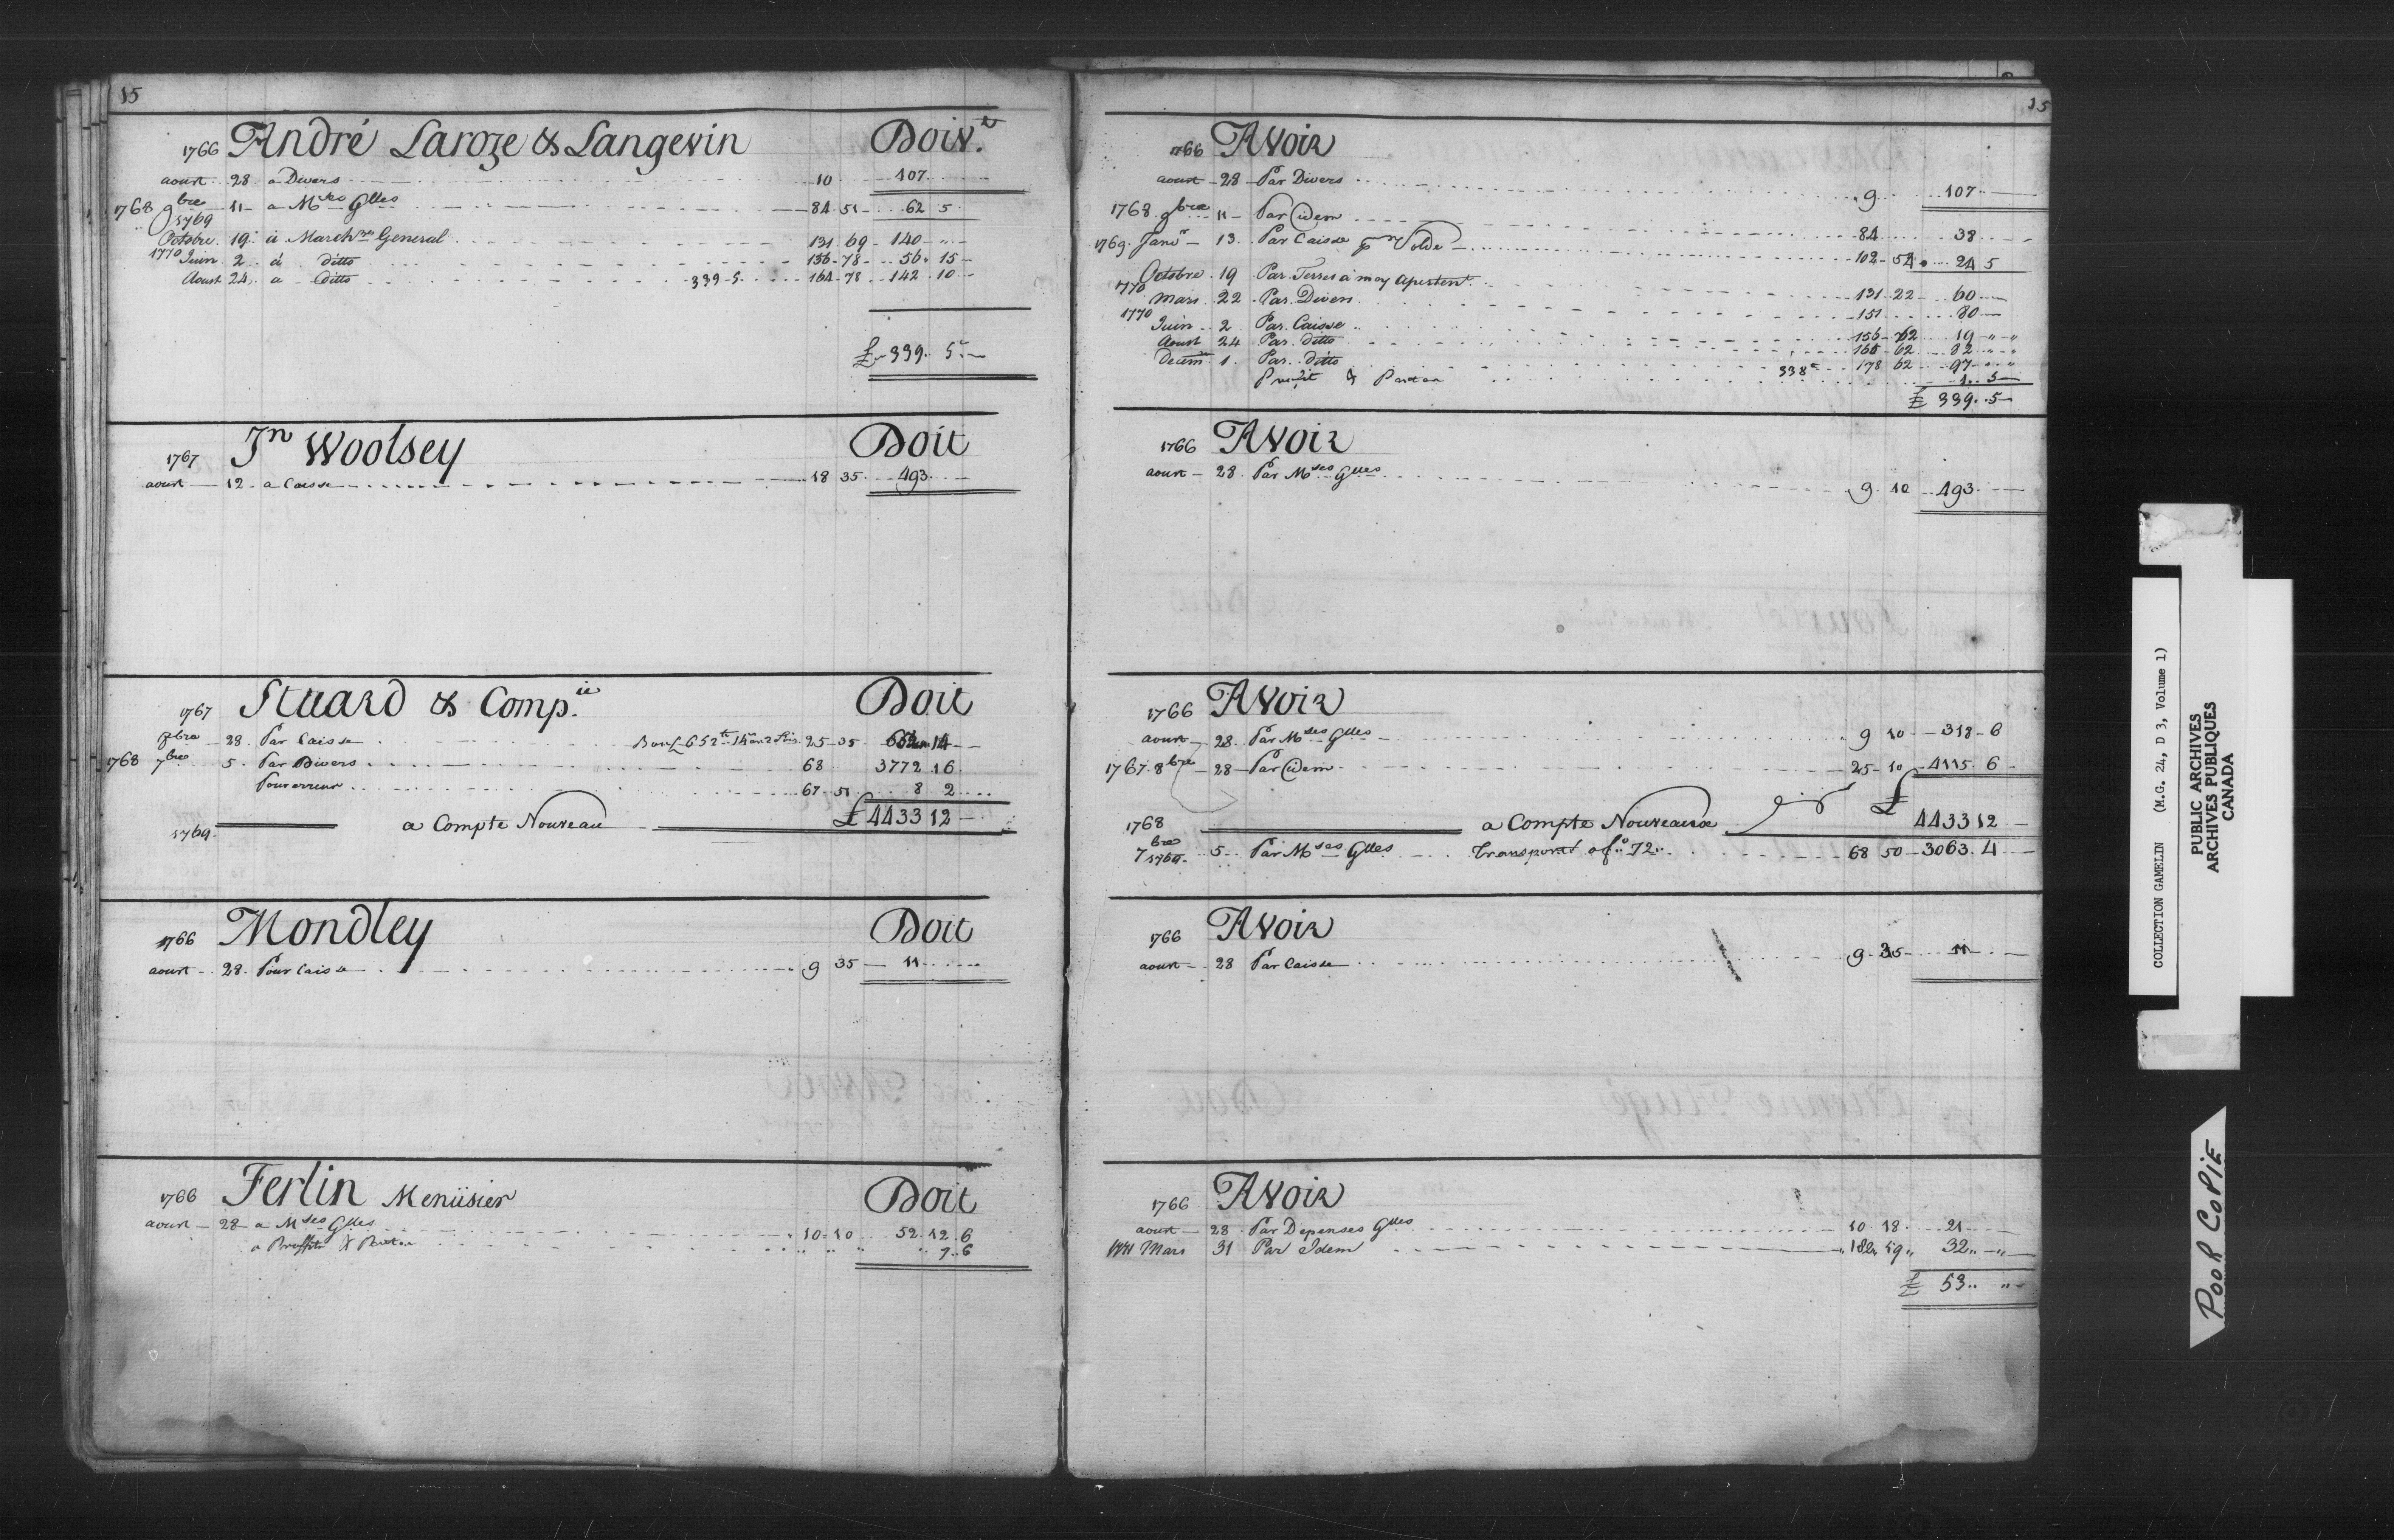 15
1766 André Laroze & Langevin Doivt.
aoust 28 a Divers 10 107
1768 9bre 11 a Mses Glles 84 51 62 5
1769
Octobre 19 à Marchses General 131 69 140 "
1770 Juin 2 à ditto 156 78 56 15
Aoust 24 a Ditto 339 5 164 78 142 10
£ 339 5
1767 Jn Woolsey Doit
aoust 12 a Caisse 18 35 493
1767 Stuard & Compie Doit
8bre 28 Par Caisse 25 35 652 14
1768 7bre 5 Par Divers 68 3772 16
Pour erreur 67 51 8 2
£ 4433 12
1769 a Compte Nouveau
1766 Mondley Doit
aoust 28 Pour Caisse 9 35 11
1766 Ferlin Menüsier Doit
aoust 28 a Mses Glles 10 10 52 12 6
a Proffits & Pertes " " " " 7 6
15
1766 Avoir
aoust 28 Par Divers 9 107
1768 9bre 11 Par idem 84 38
1769 Janvr 13 Par Caisse pr Solde 102 52 24 5
Octobre 19 Par Terres a moy apartent 131 22 60
1770
Mars 22 Par Divers 151 80
1770
Juin 2 Par Caisse 156 62 19 " "
Aoust 24 Par ditto 164 62 82 " "
Decem 1 Par ditto 338 178 62 97 " "
Profit & Pertes 1 5
£ 339 5
1766 Avoir
aoust 28 Par Mses Glles 9 10 493
1766 Avoir
aoust 28 Par Mses Glles 9 10 318 6
1767 8bre 28 Par idem 25 10 4115 6
£ 4433 12
1768 a Compte Nouveau
7bre 5 Par Mses Glles Transporté a fo 72 68 50 3063 4
1769
1766 Avoir
aoust 28 Par Caisse 9 35 11
1766 Avoir
aoust 28 Par Depenses Glles 10 18 21
1771 Mars 31 Par Idem 182 59 32 "
£ 53 "
COLLECTION GAMELIN (M.G. 24, D 3, Volume 1)
PUBLIC ARCHIVES
ARCHIVES PUBLIQUES
CANADA
POOR COPIE